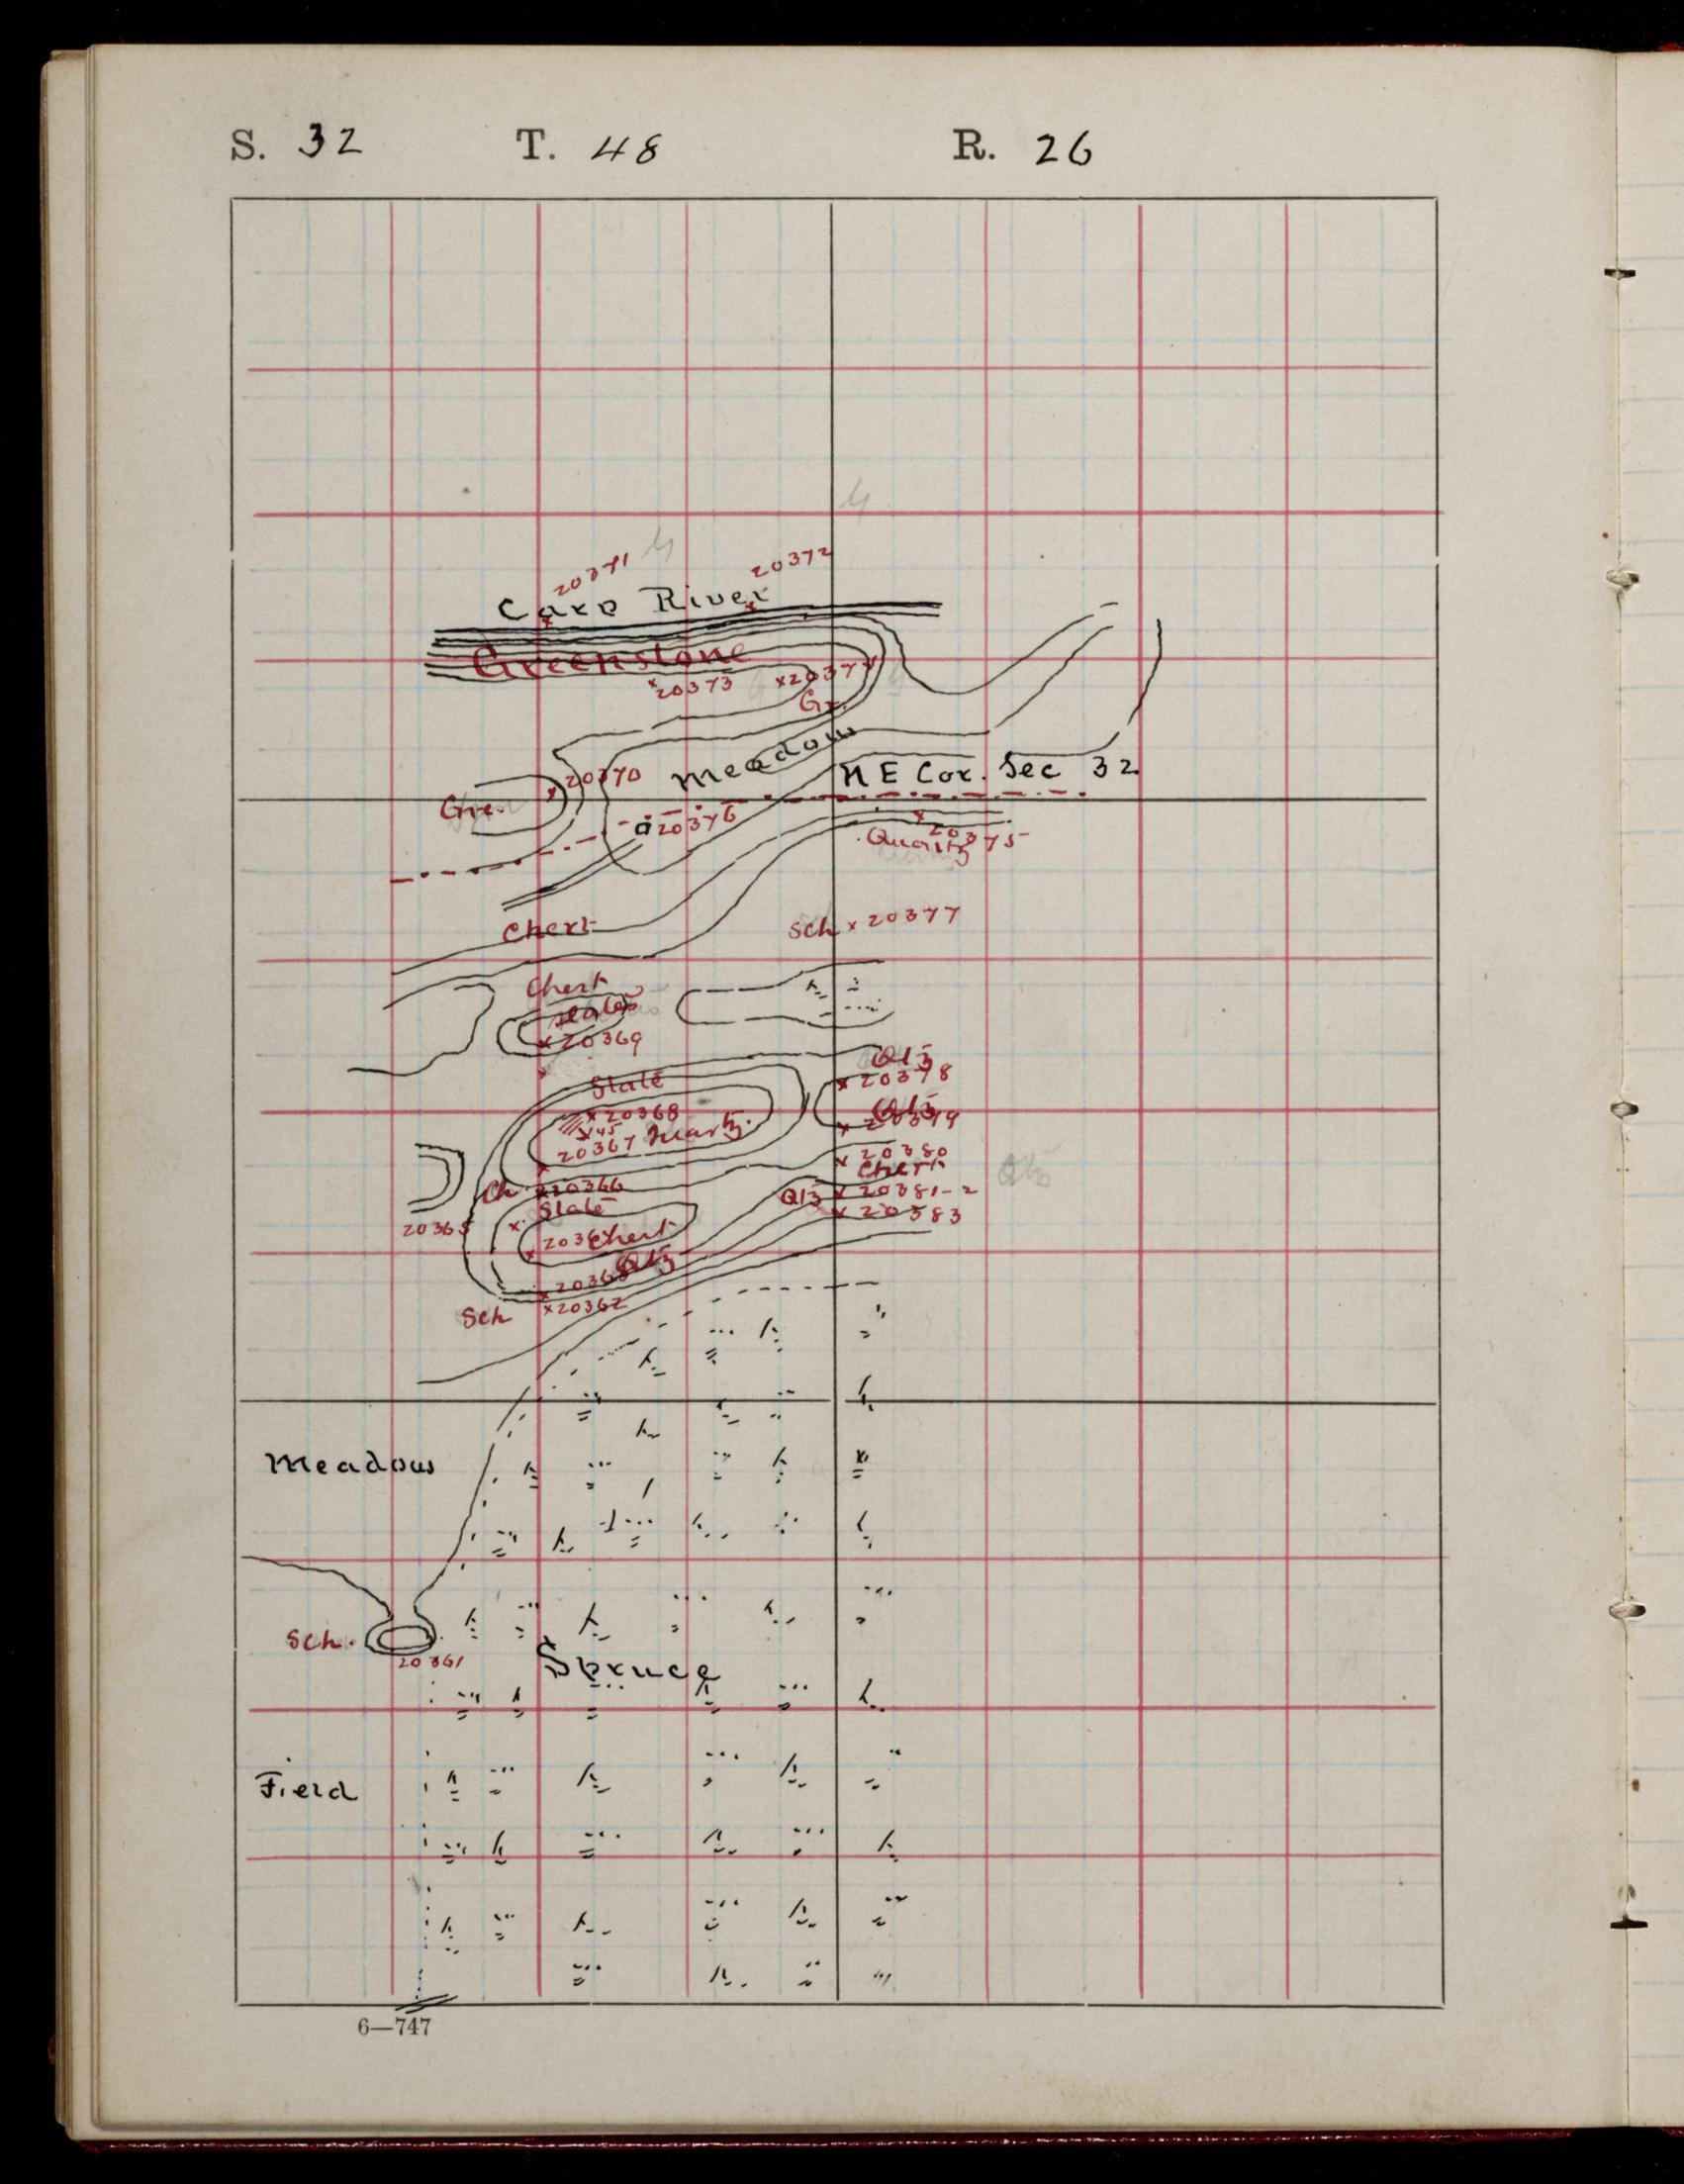 S. 32 T. 48 R. 26
20371
20372
Carp River
Greenstone
20373
Gr.
Meadow
20370
N E Cor. Sec 32
Gre.
20376
20375
Quartz
Chert
Sch x 20377
Chert
Slate
x 20369
Qtz
Slate
x 20378
x 20368
Qtz
x 20379
x 45
20367 Quartz.
x 20380
Chert
Ch x 20366
Qtz x 20381-2
Slate
x 20383
20365 x
Chert
Qtz
x 20363
x 20362
Sch
Meadow
Sch.
20361
Spruce
Field
6—747